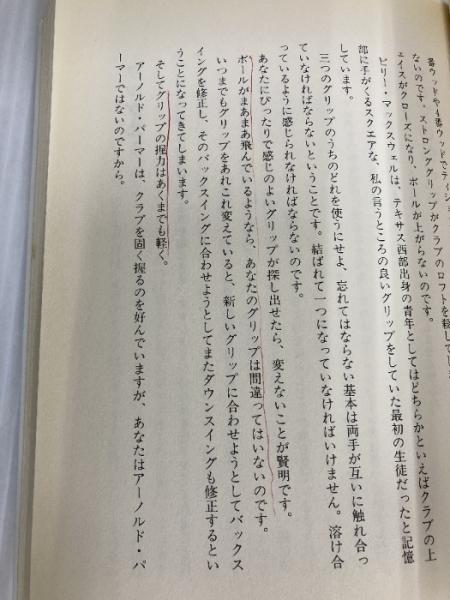 番ウッドや4番ウッドでティショ
ないのです。ストロンググリップがクラブのロフトを殺してし
エイスがクローズになり、ボールが上がらないのです。
ビリー・マックスウェルは、テキサス西部出身の青年としてはどちらかといえばクラブの上
部に手がくるスクエアな、私の言うところの良いグリップをしていた最初の生徒だったと記憶
しています。
三つのグリップのうちのどれを使うにせよ、忘れてはならない基本は両手が互いに触れ合っ
ていなければならないということです。結ばれて一つになっていなければいけません。溶け合
っているように感じられなければならないのです。
あなたにぴったりで感じのよいグリップが探し出せたら、変えないことが賢明です。
ボールがまあまあ飛んでいるようなら、あなたのグリップは間違ってはいないのです。
いつまでもグリップをあれこれ変えていると、新しいグリップに合わせようとしてバックス
イングを修正し、そのバックスイングに合わせようとしてまたダウンスイングも修正するとい
うことになってきてしまいます。
そしてグリップの握力はあくまでも軽く。
アーノルド・パーマーは、クラブを固く握るのを好んでいますが、あなたはアーノルド・パ
ーマーではないのですから。